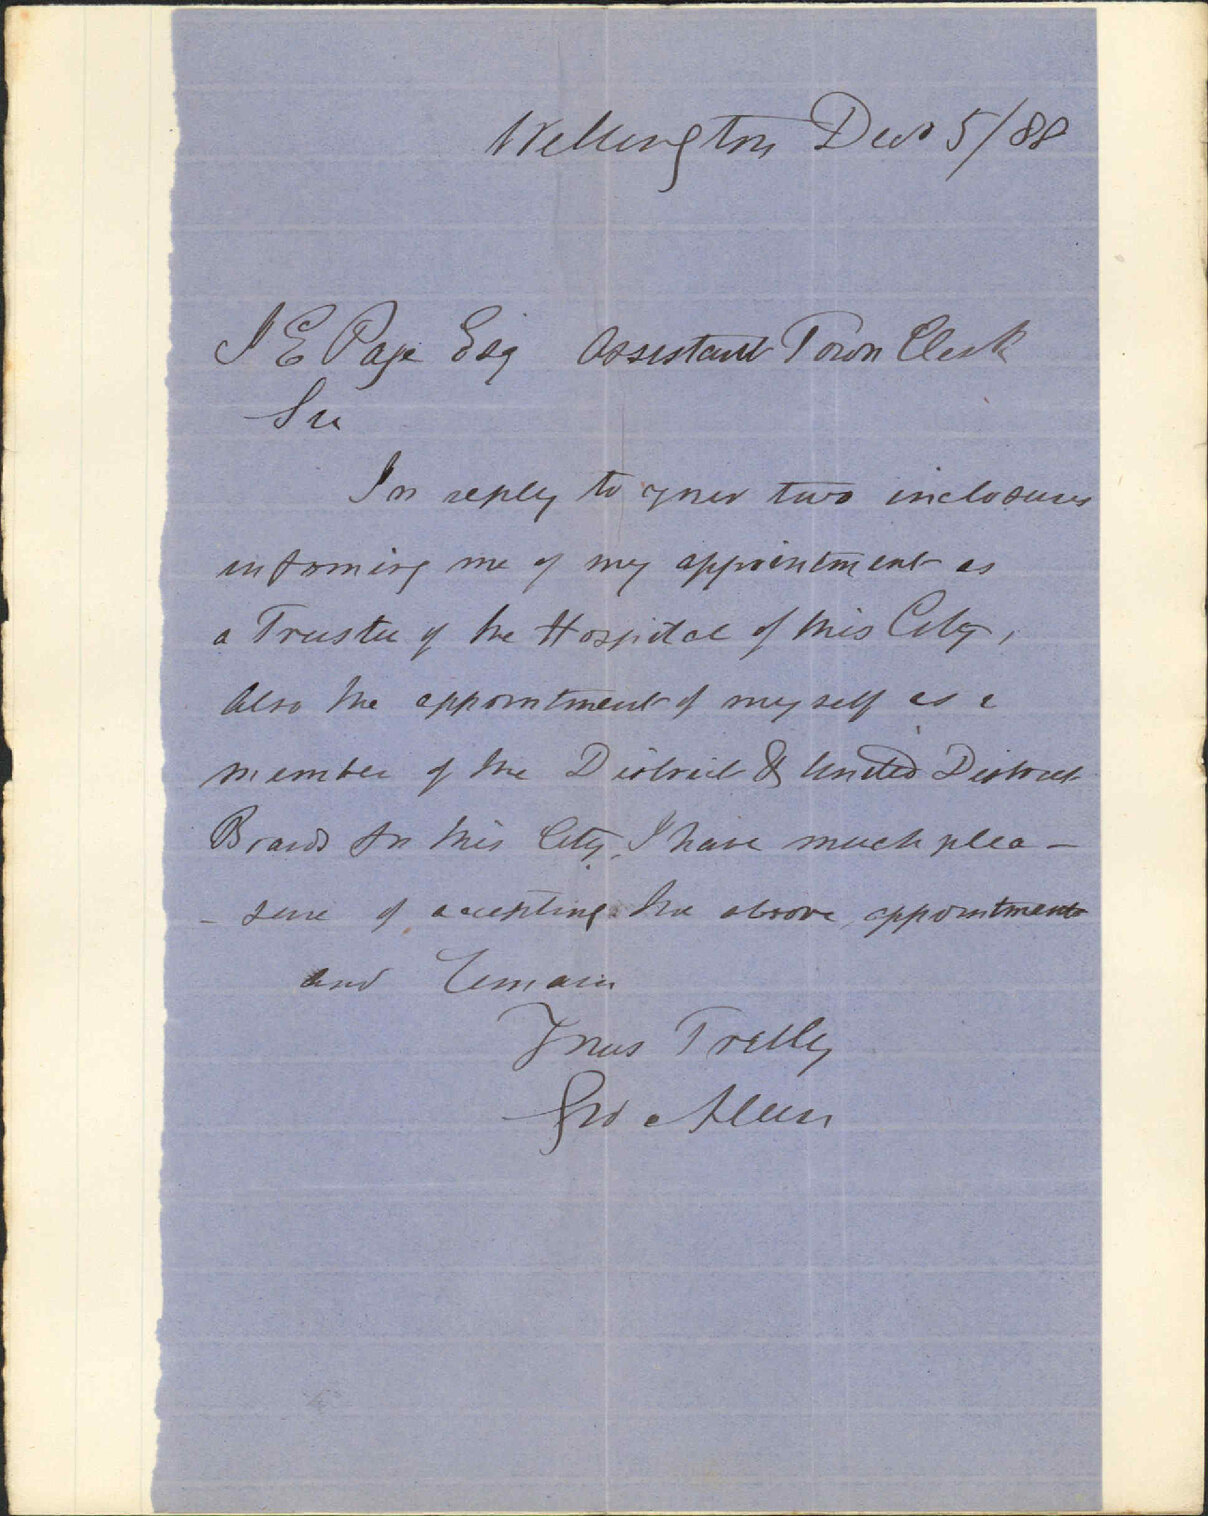 Wellington Decr 5/88
J E Page Esq Assistant Town Clerk
Sir
In reply to your two inclosures
informing me of my appointment as
a Trustee of the Hospital of this City,
Also the appointment of myself as a
member of the District & United District
Board for this City, I have much plea-
-sure of accepting the above appointments
and remain
Yours Truly
Geo Allen